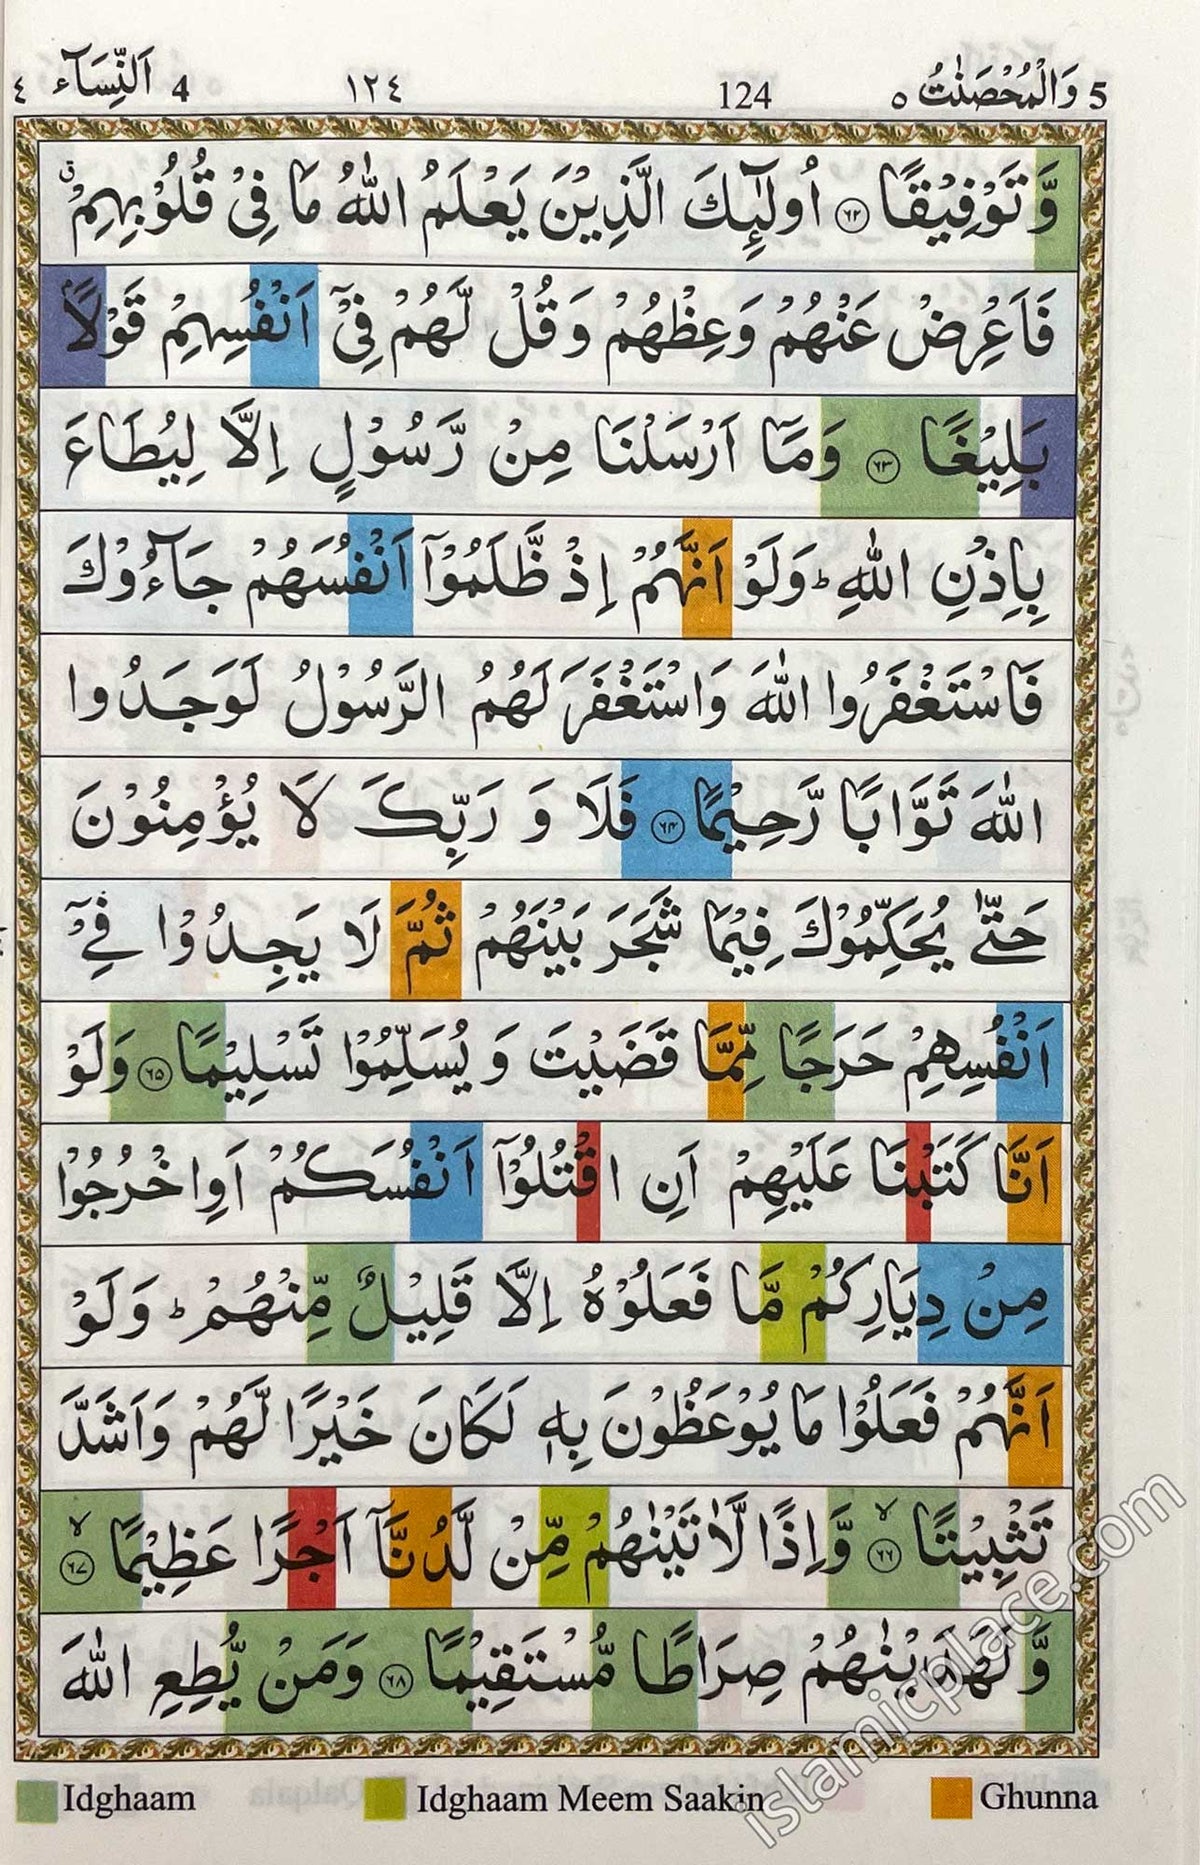 5 وَالْمُحْصَنٰتُ ٥ 124 ١٢٤ 4 اَلنِّسَآء ٤
وَّ تَوْفِيْقًا ۝۶۲ اُولٰٓىِٕكَ الَّذِيْنَ يَعْلَمُ اللّٰهُ مَا فِيْ قُلُوْبِهِمْ ۗ
فَاَعْرِضْ عَنْهُمْ وَعِظْهُمْ وَقُلْ لَّهُمْ فِيْٓ اَنْفُسِهِمْ قَوْلًاۢ
بَلِيْغًا ۝۶۳ وَمَآ اَرْسَلْنَا مِنْ رَّسُوْلٍ اِلَّا لِيُطَاعَ
بِاِذْنِ اللّٰهِ ؕ وَلَوْ اَنَّهُمْ اِذْ ظَّلَمُوْٓا اَنْفُسَهُمْ جَآءُوْكَ
فَاسْتَغْفَرُوا اللّٰهَ وَاسْتَغْفَرَ لَهُمُ الرَّسُوْلُ لَوَجَدُوا
اللّٰهَ تَوَّابًا رَّحِيْمًا ۝۶۴ فَلَا وَ رَبِّكَ لَا يُؤْمِنُوْنَ
حَتّٰى يُحَكِّمُوْكَ فِيْمَا شَجَرَ بَيْنَهُمْ ثُمَّ لَا يَجِدُوْا فِيْٓ
اَنْفُسِهِمْ حَرَجًا مِّمَّا قَضَيْتَ وَ يُسَلِّمُوْا تَسْلِيْمًا ۝۶۵ وَلَوْ
اَنَّا كَتَبْنَا عَلَيْهِمْ اَنِ اقْتُلُوْٓا اَنْفُسَكُمْ اَوِ اخْرُجُوْا
مِنْ دِيَارِكُمْ مَّا فَعَلُوْهُ اِلَّا قَلِيْلٌ مِّنْهُمْ ؕ وَلَوْ
اَنَّهُمْ فَعَلُوْا مَا يُوْعَظُوْنَ بِهٖ لَكَانَ خَيْرًا لَّهُمْ وَاَشَدَّ
تَثْبِيْتًا ۙ۝۶۶ وَّاِذًا لَّاٰتَيْنٰهُمْ مِّنْ لَّدُنَّآ اَجْرًا عَظِيْمًا ۙ۝۶۷
وَّ لَهَدَيْنٰهُمْ صِرَاطًا مُّسْتَقِيْمًا ۝۶۸ وَمَنْ يُّطِعِ اللّٰهَ
Idghaam Idghaam Meem Saakin Ghunna
islamicplace.com